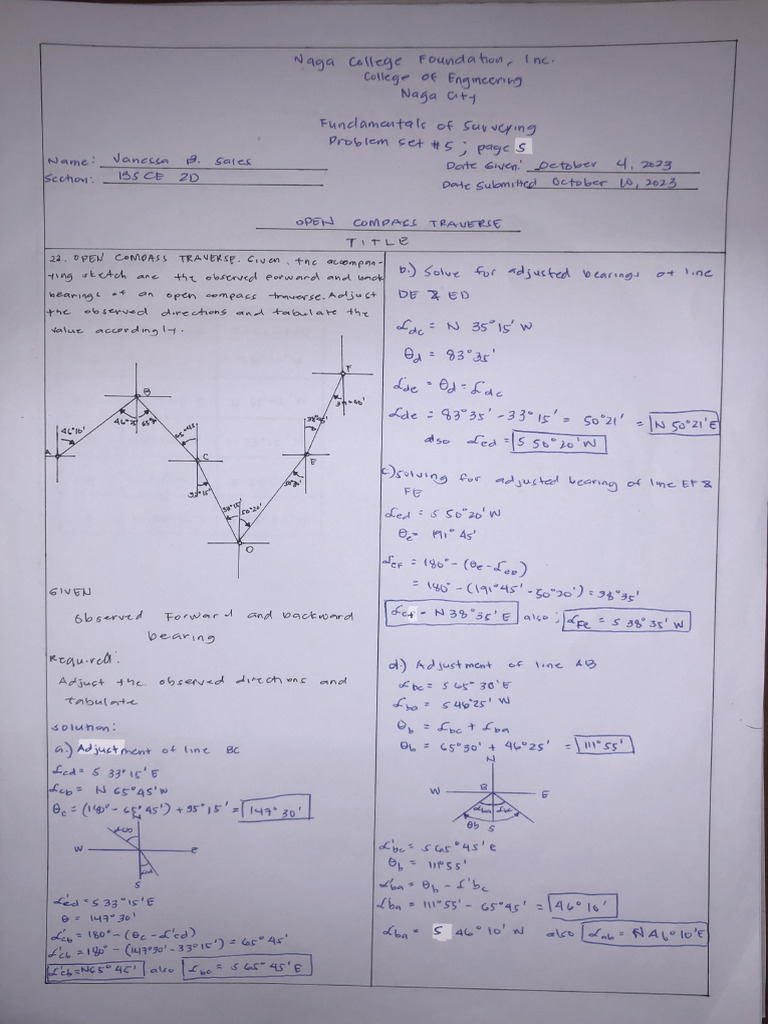 Naga College Foundation, Inc.
College of Engineering
Naga City
Fundamentals of Surveying
Problem set #5; page 5
Name: Vanessa B. Sales
Date Given: October 4, 2023
Section: BSCE 2D
Date Submitted October 10, 2023
OPEN COMPASS TRAVERSE
TITLE
22. OPEN COMPASS TRAVERSE. Given, the accompan-
ying sketch are the observed forward and back
bearings of an open compass traverse. Adjust
the observed directions and tabulate the
value accordingly.
A
46°10'
B
46°25'
C
33°15'
D
50°20'
E
F
GIVEN
Observed Forward and backward
bearing
Required:
Adjust the observed directions and
tabulate
Solution:
a.) Adjustment of line BC
αcd = S 33°15' E
αcb = N 65°45' W
θc = (180° - 65°45') + 35°15' = 147°30'
N
αcb
W
E
S
α'cd = S 33°15' E
θ = 147°30'
α'cb = 180° - (θc - α'cd)
α'cb = 180° - (147°30' - 33°15') = 65°45'
α'cb = N65°45' also αbc = S 65°45' E
b.) Solve for adjusted bearings of line
DE & ED
αdc = N 35°15' W
θd = 83°35'
αde = θd = αdc
αde = 83°35' - 33°15' = 50°21' = N 50°21' E
also αed = S 50°20' W
c.) Solving for adjusted bearing of line EF &
FE
αed = S 50°20' W
θe = 191°45'
= 180° - (191°45' - 50°20') = 38°35'
αef = N 38°35' E also; αFE = S 38°35' W
d.) Adjustment of line AB
αbc = S 65°30' E
αba = S 46°25' W
θb = αbc + αba
θb = 65°30' + 46°25' = 111°55'
N
W
B
E
αba
αbc
θb
S
α'bc = S 65°45' E
θb = 111°55'
α'ba = θb - α'bc
α'ba = 111°55' - 65°45' = 46°10'
αba = S 46°10' W also αab = N 46°10' E